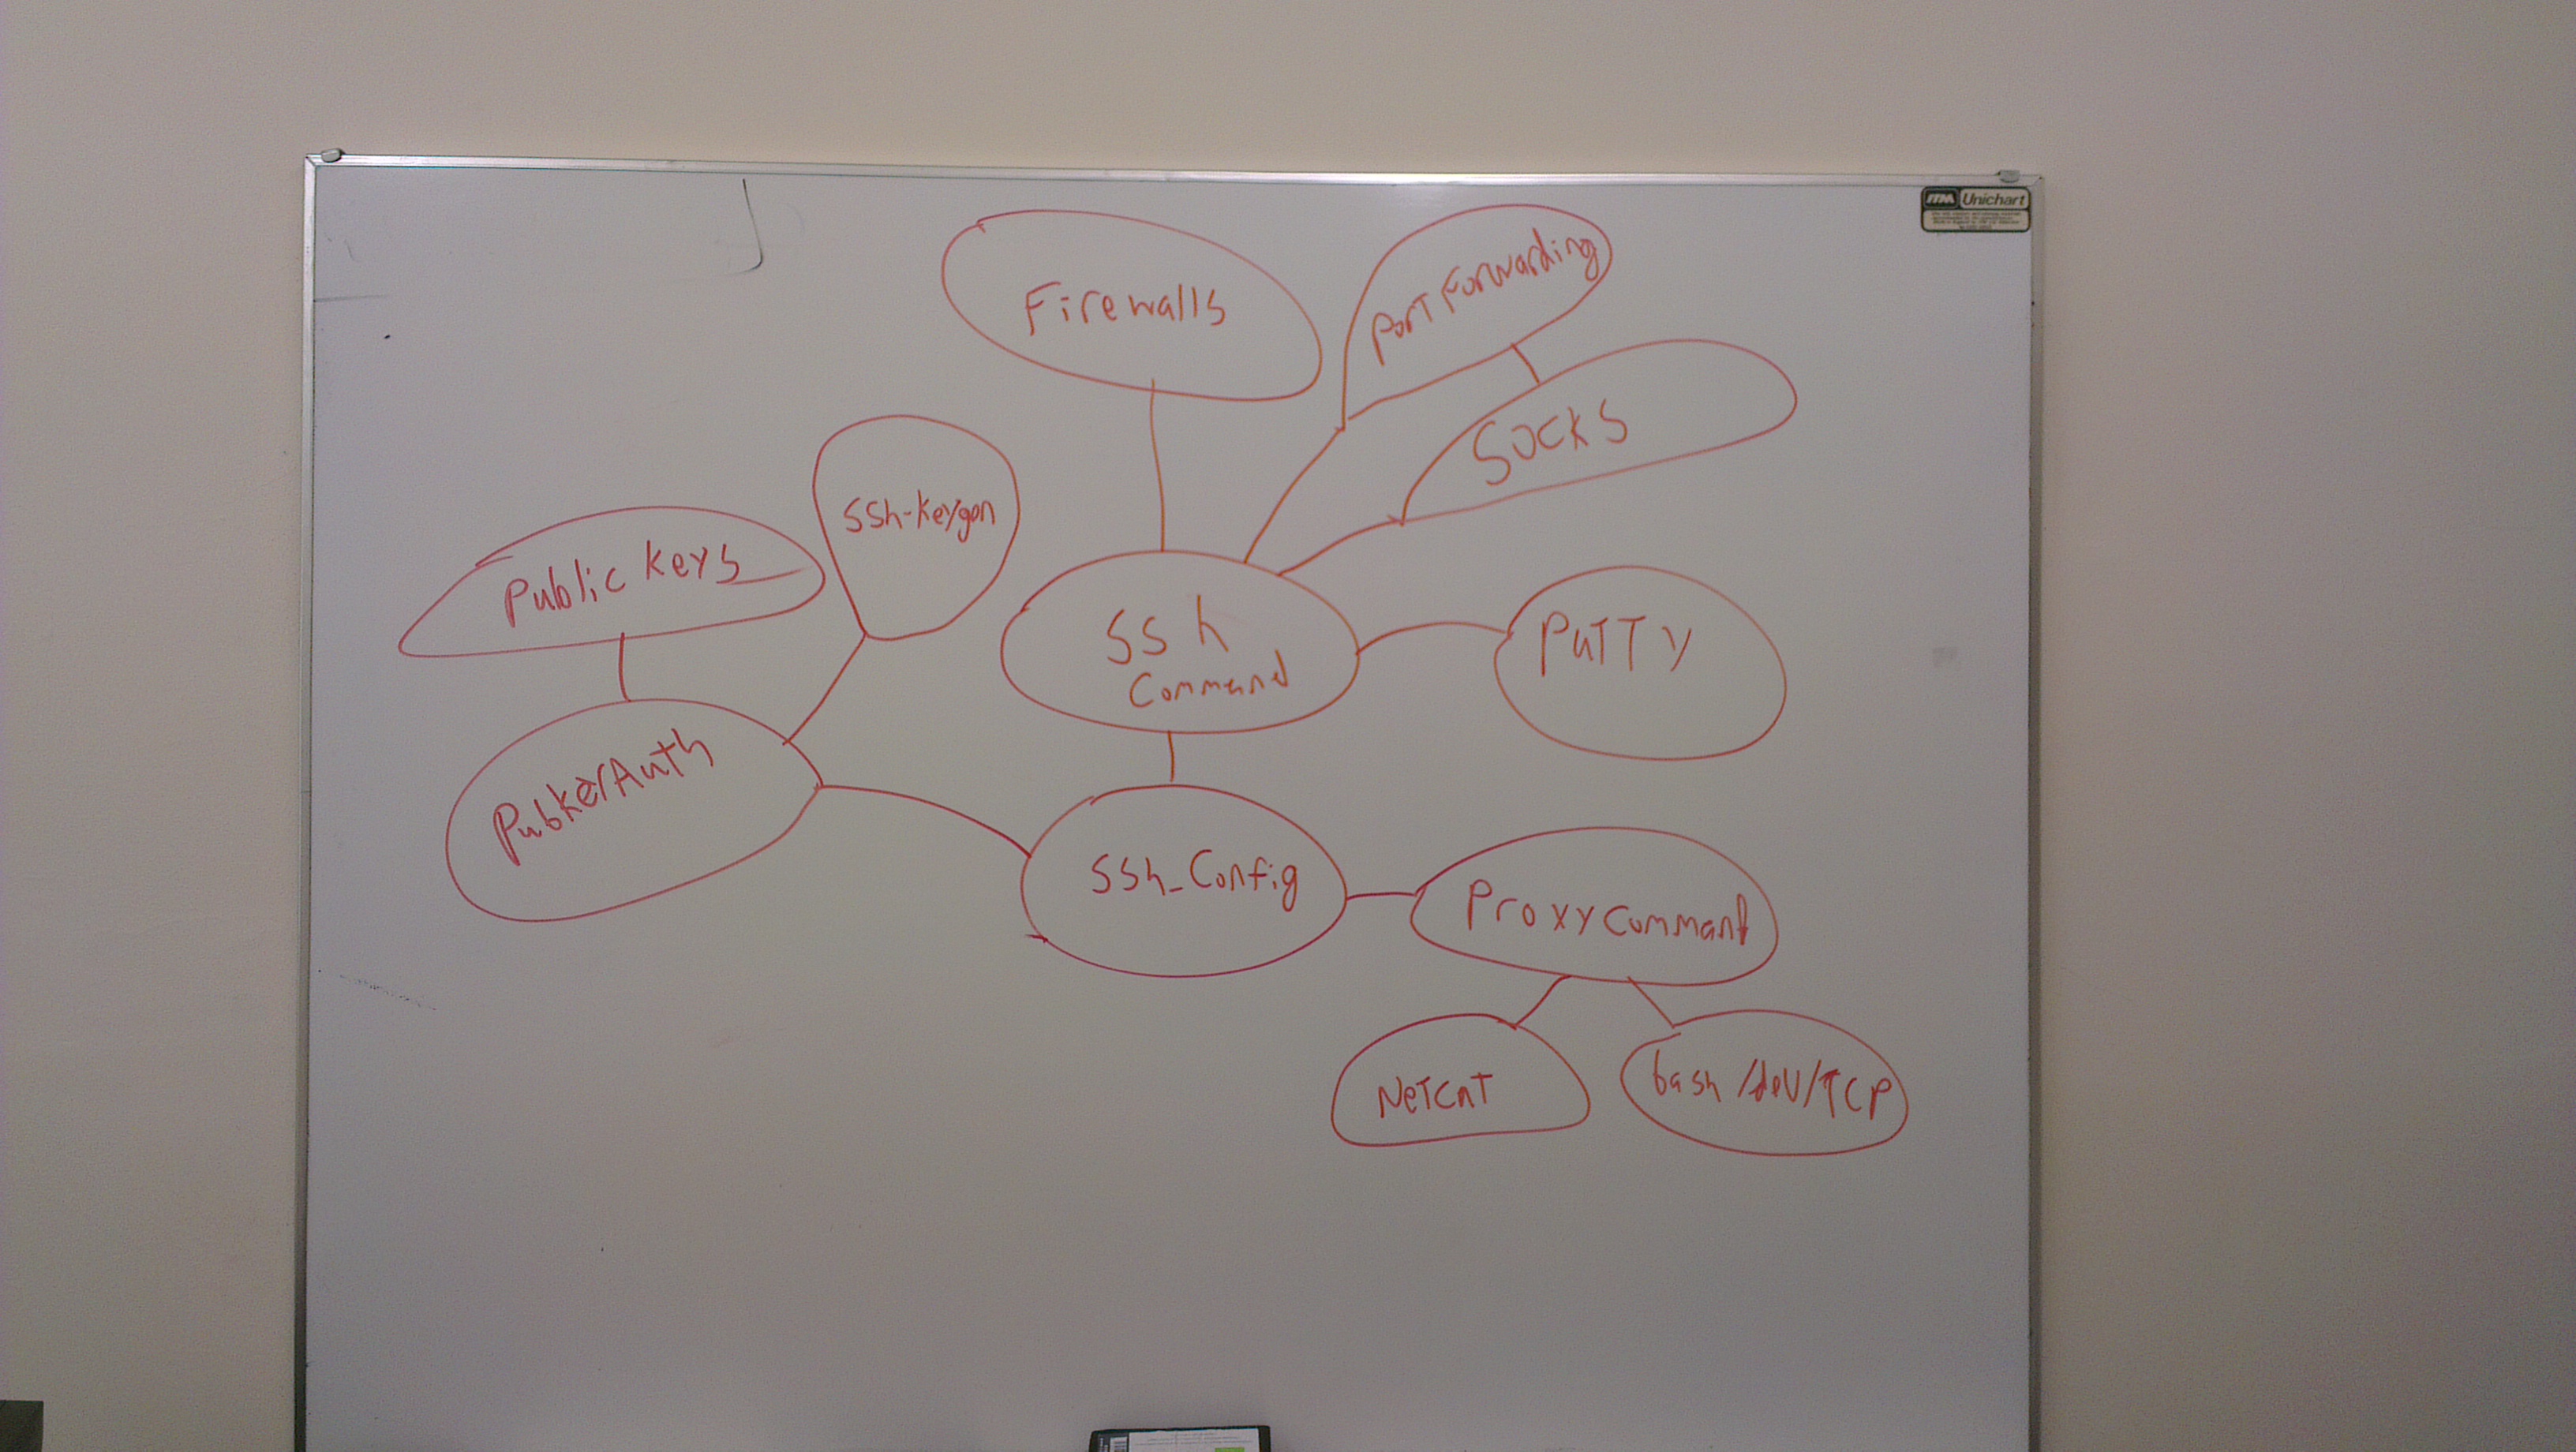 ITM Unichart
Firewalls
Port Forwarding
SOCKS
SSh-Keygen
Public Keys
SSh
Command
PuTTy
PubKeyAuth
SSh_Config
Proxy Command
NeTCaT
bash /deV/TCP